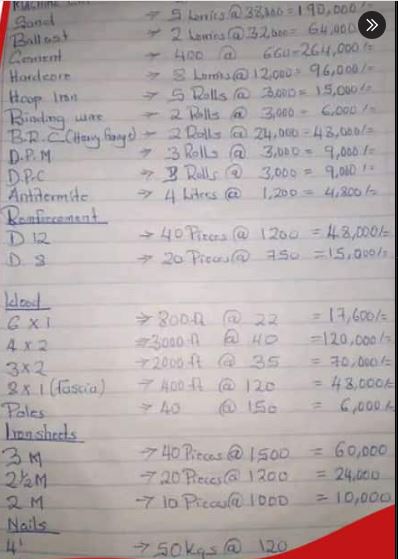 Sand → 5 Lorries @ 38,000 = 190,000/=
Ballast → 2 Lorries @ 32,000 = 64,000
Cement → 400 @ 660 = 264,000/=
Hardcore → 8 Lorries @ 12,000 = 96,000/=
Hoop Iron → 5 Rolls @ 3,000 = 15,000/=
Binding wire → 2 Rolls @ 3,000 = 6,000/=
B.R.C (Heavy Gauge) → 2 Rolls @ 24,000 = 48,000/=
D.P.M → 3 Rolls @ 3,000 = 9,000/=
D.P.C → 3 Rolls @ 3,000 = 9,000/=
Antitermite → 4 Litres @ 1,200 = 4,800/=
Reinforcement
D 12 → 40 Pieces @ 1200 = 48,000/=
D. 8 → 20 Pieces @ 750 = 15,000/=
Wood
6 x 1 → 800 ft @ 22 = 17,600/=
4 x 2 → 3000 ft @ 40 = 120,000/=
3x2 → 2000 ft @ 35 = 70,000/=
8 x 1 (fascia) → 400 ft @ 120 = 48,000/=
Poles → 40 @ 150 = 6,000/=
Iron sheets
3 M → 40 Pieces @ 1500 = 60,000
2½ M → 20 Pieces @ 1200 = 24,000
2 M → 10 Pieces @ 1000 = 10,000
Nails
4' → 50 Kgs @ 120